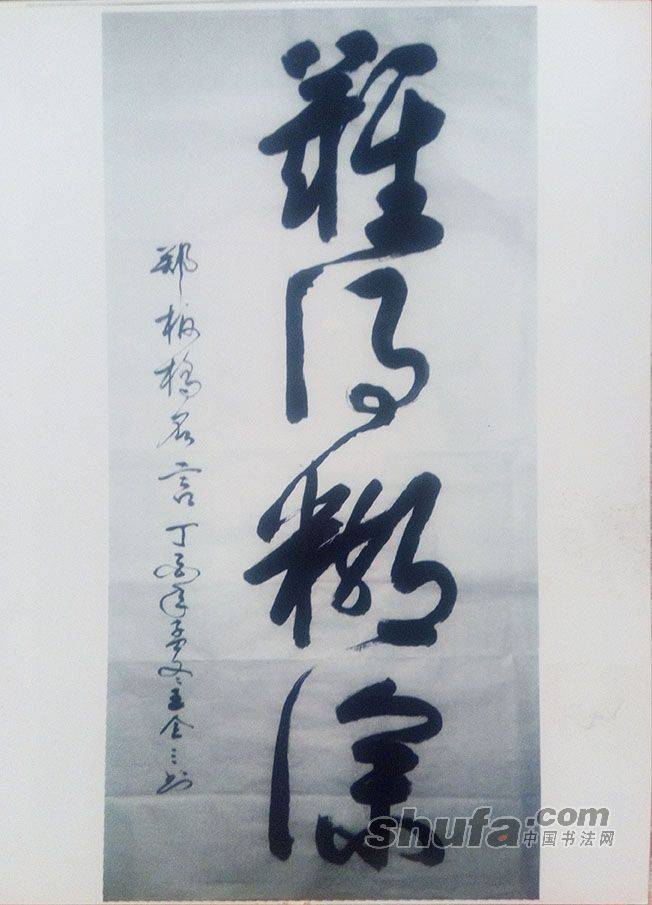 難得糊塗
郑板桥名言 丁酉年孟冬 王金三书
shufa.com
中国书法网